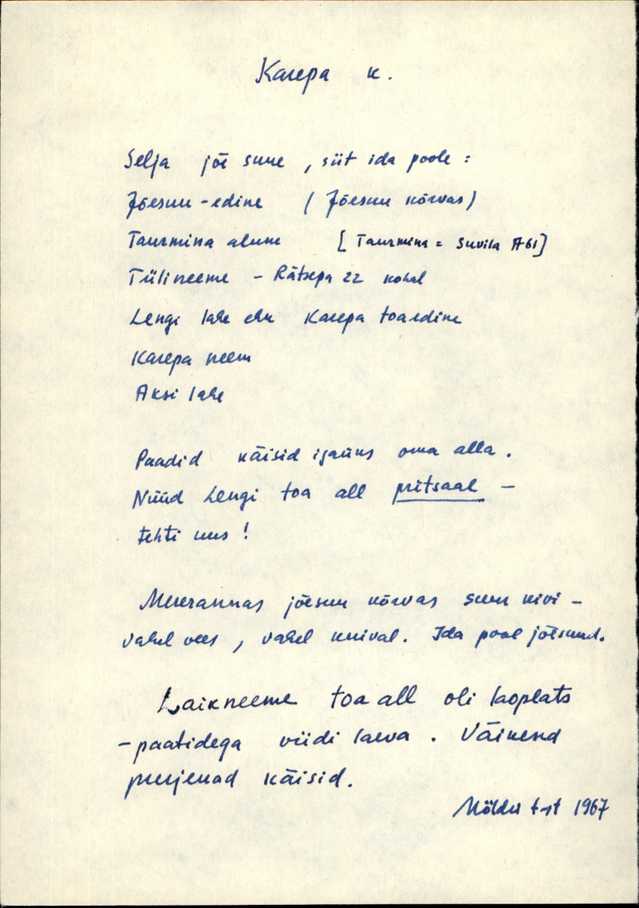 Karepa k.
Selja jõe suue, siit ida poole:
Jõesuu-edine (Jõesuu kõrvas)
Taurmina alune [Taurmina = Suvila A61]
Tülineeme - Rätsepa 22 kohal
Lengi lahe ehu Karepa toaedine
Karepa neem
Aksi lahe
Paadid käisid igaüks oma alla.
Nüüd Lengi toa all pritsaal -
tehti uus!
Mererannas jõesuu kõrvas suur kivi -
vahel vees, vahel kuival. Ida pool jõesuud.
Laikneeme toa all oli laoplats
- paatidega viidi laeva. Väikend
purjekad käisid.
1967